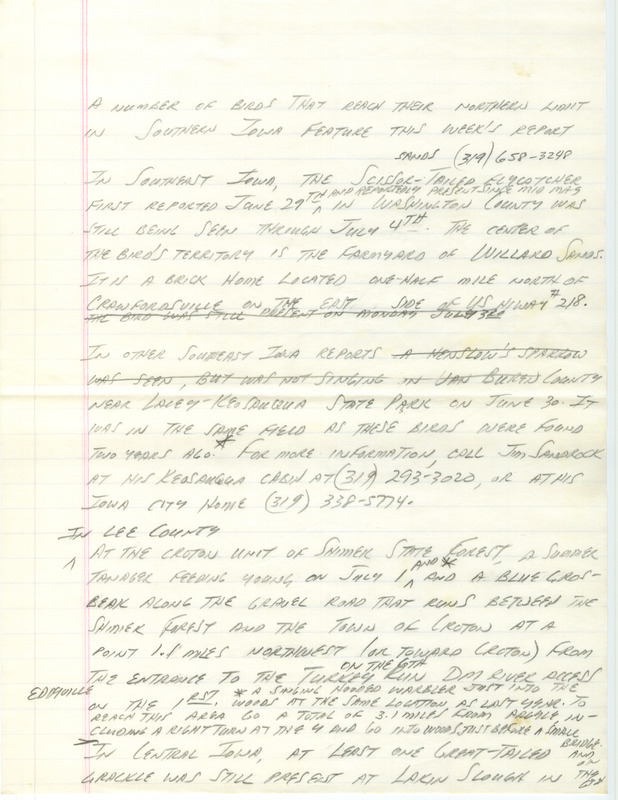 A NUMBER OF BIRDS THAT REACH THEIR NORTHERN LIMIT
IN SOUTHERN IOWA FEATURE THIS WEEK'S REPORT
SANDS (319) 658-3248
IN SOUTHEAST IOWA, THE SCISSOR-TAILED FLYCATCHER
AND REPORTEDLY PRESENT SINCE MID MAY
FIRST REPORTED JUNE 29TH ^ IN WASHINGTON COUNTY WAS
STILL BEING SEEN THROUGH JULY 4TH. THE CENTER OF
THE BIRD'S TERRITORY IS THE FARMYARD OF WILLARD SANDS.
IT IS A BRICK HOME LOCATED ONE-HALF MILE NORTH OF
CRAWFORDSVILLE ON THE EAST SIDE OF US HIWAY #218.
THE BIRD WAS STILL PRESENT ON MONDAY JULY 3RD
IN OTHER SOUTEAST IOWA REPORTS A HENSLOW'S SPARROW
WAS SEEN, BUT WAS NOT SINGING IN VAN BUREN COUNTY
NEAR LACEY-KEOSAUQUA STATE PARK ON JUNE 30. IT
WAS IN THE SAME FIELD AS THESE BIRDS WERE FOUND
TWO YEARS AGO.* FOR MORE INFORMATION, CALL JIM SANDROCK
AT HIS KEOSAUQUA CABIN AT (319) 293-3020, OR AT HIS
IOWA CITY HOME (319) 338-5774.
IN LEE COUNTY
^ AT THE CROTON UNIT OF SHIMEK STATE FOREST, A SUMMER
AND *
TANAGER FEEDING YOUNG ON JULY 1 ^ AND A BLUE GROS-
BEAK ALONG THE GRAVEL ROAD THAT RUNS BETWEEN THE
SHIMEK FOREST AND THE TOWN OF CROTON AT A
POINT 1.8 MILES NORTHWEST (OR TOWARD CROTON) FROM
ON THE
THE ENTRANCE TO THE TURKEY RUN DM RIVER ACCESS
ON THE 1RST. * A SINGING HOODED WARBLER JUST INTO THE
WOODS AT THE SAME LOCATION AS LAST YEAR. TO
REACH THIS AREA GO A TOTAL OF 3.1 MILES FROM ARGYLE IN-
CLUDING A RIGHT TURN AT THE Y AND GO INTO WOODS, JUST BEFORE A SMALL
BRIDGE.
IN CENTRAL IOWA, AT LEAST ONE GREAT-TAILED AND
GRACKLE WAS STILL PRESENT AT LAKIN SLOUGH IN